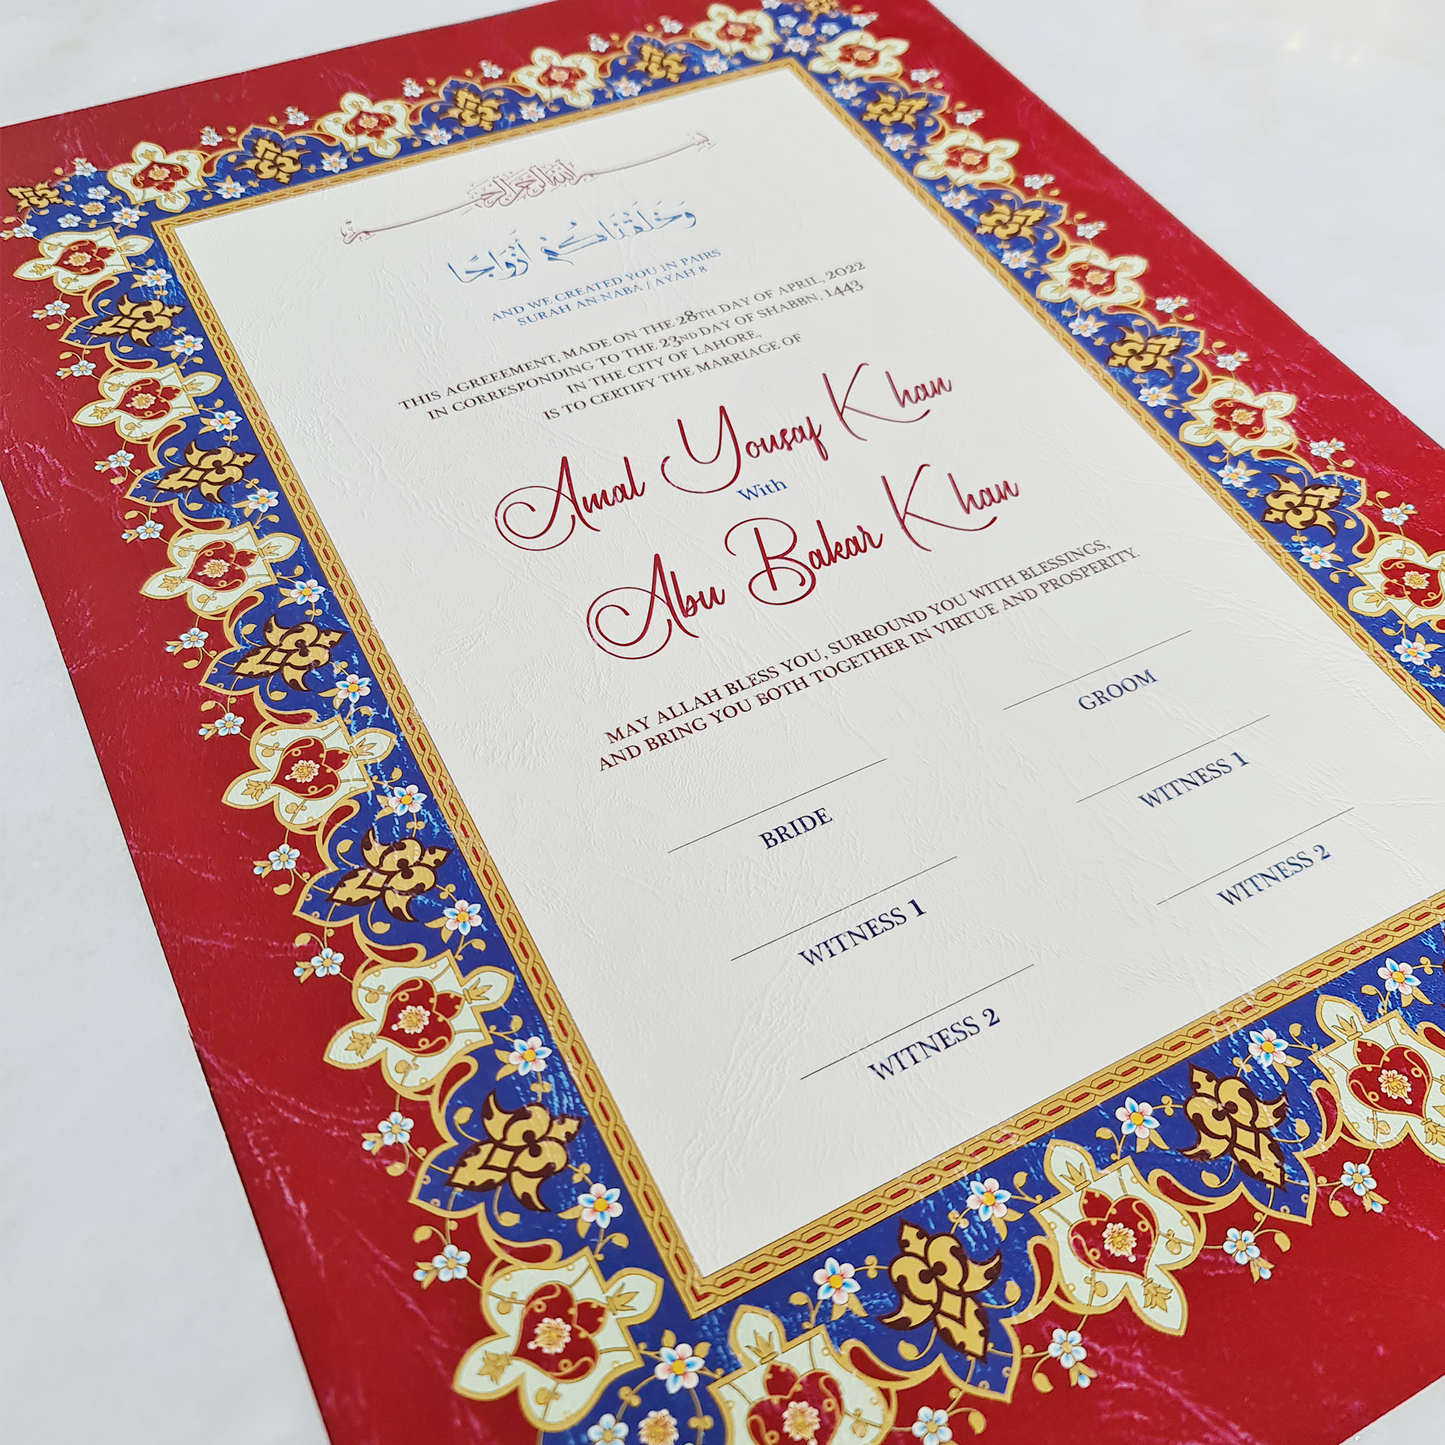 بسم الله الرحمن الرحيم
وَخَلَقْنَاكُمْ أَزْوَاجًا
AND WE CREATED YOU IN PAIRS
SURAH AN-NABA / AYAH 8
THIS AGREEEMENT, MADE ON THE 28TH DAY OF APRIL, 2022
IN CORRESPONDING TO THE 23ND DAY OF SHABBN, 1443
IN THE CITY OF LAHORE,
IS TO CERTIFY THE MARRIAGE OF
Amal Yousaf Khan
With
Abu Bakar Khan
MAY ALLAH BLESS YOU, SURROUND YOU WITH BLESSINGS,
AND BRING YOU BOTH TOGETHER IN VIRTUE AND PROSPERITY.
GROOM
BRIDE
WITNESS 1
WITNESS 1
WITNESS 2
WITNESS 2